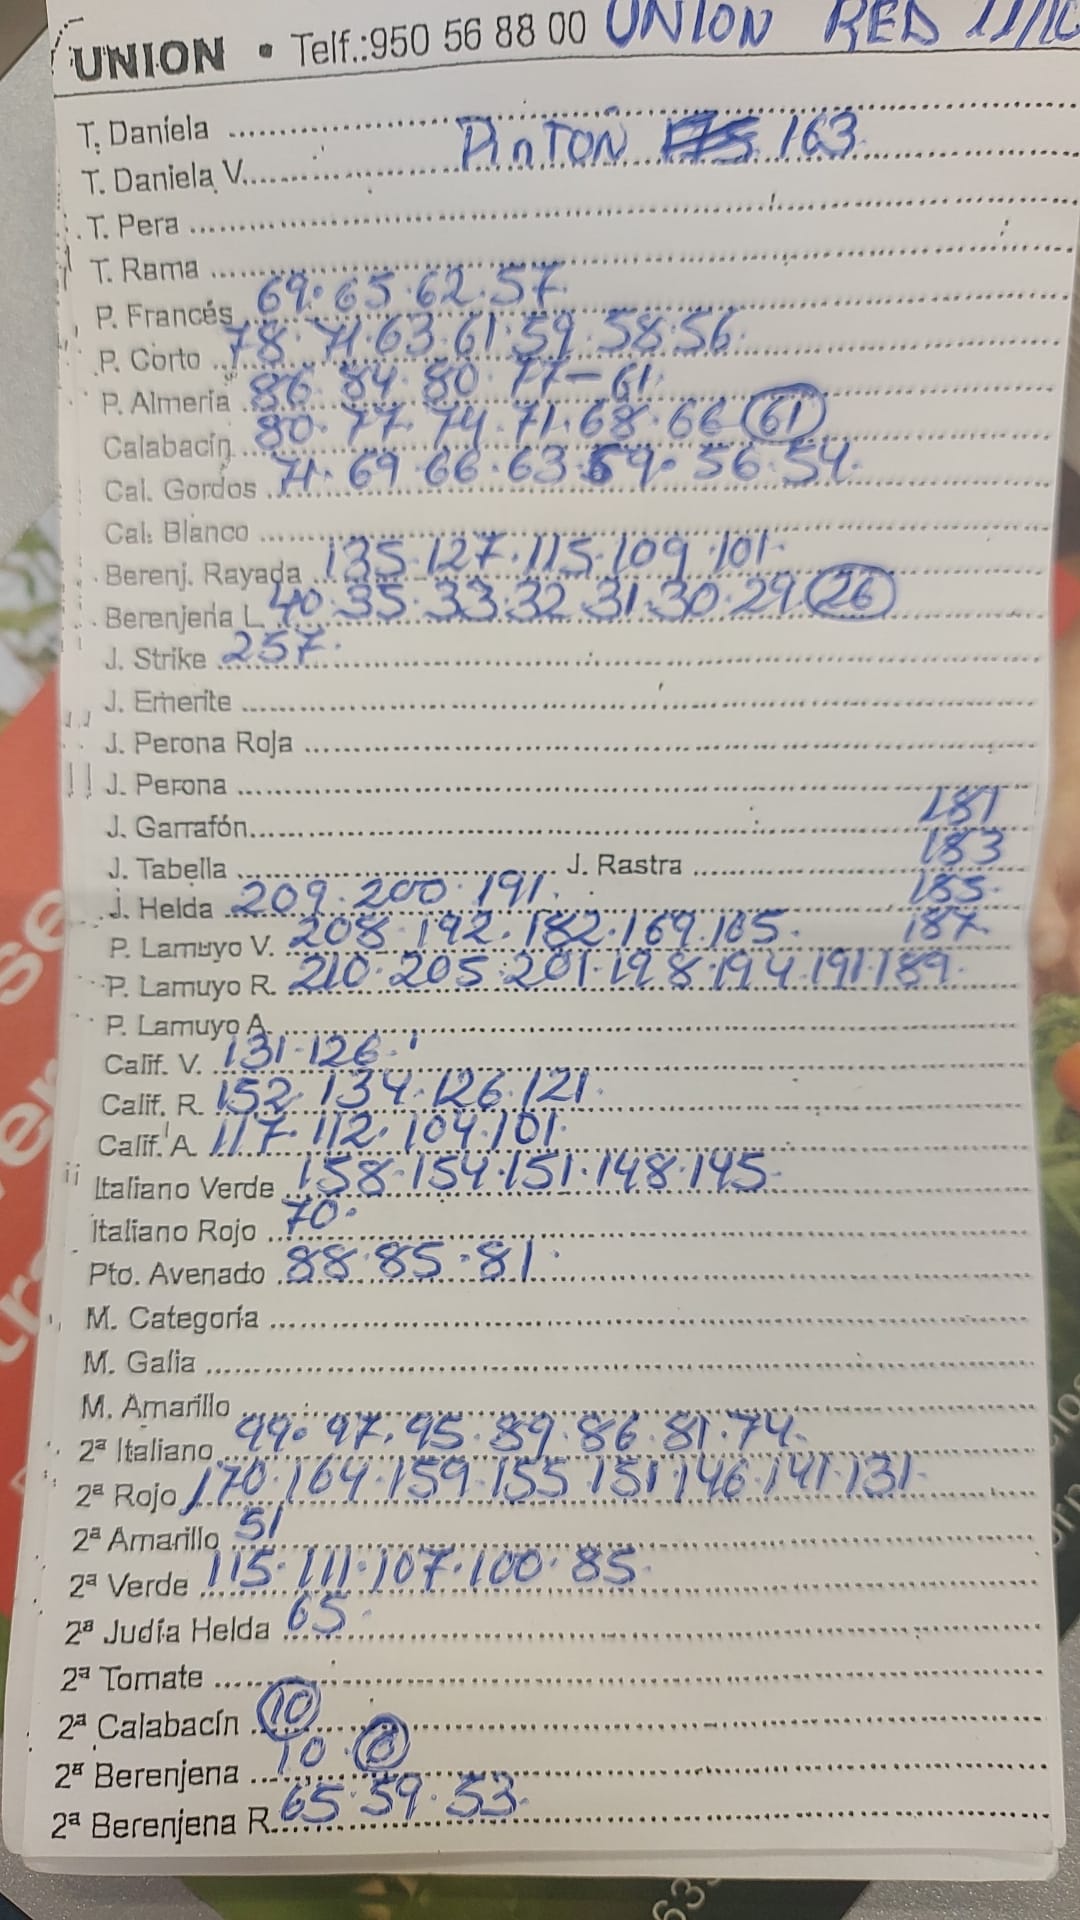 UNION • Telf.:950 56 88 00 UNION RED 11/10
T. Daniela
PinTON 163
T. Daniela V.
T. Pera
T. Rama
P. Francés 69. 65. 62. 57.
P. Corto 78. 71. 63. 61. 59. 58. 56.
P. Almeria 86. 84. 80. 77-61.
Calabacín 80. 77. 74. 71. 68. 66 61
Cal. Gordos 71. 69. 66. 63. 59. 56. 54.
Cal. Blanco
Berenj. Rayada 135. 127. 115. 109. 101.
Berenjena L. 40. 35. 33. 32. 31. 30. 29. 26
J. Strike 257.
J. Emerite
J. Perona Roja
J. Perona
181
J. Garrafón
183
J. Tabella J. Rastra
185.
J. Helda 209. 200. 191.
187.
P. Lamuyo V. 208. 192. 182. 169. 165.
P. Lamuyo R. 210. 205. 201. 198. 194. 191. 189.
P. Lamuyo A.
Calif. V. 131. 126.
Calif. R. 152. 134. 126. 121.
Calif. A. 117. 112. 104. 101.
Italiano Verde 158. 154. 151. 148. 145.
Italiano Rojo 70.
Pto. Avenado 88. 85. 81.
M. Categoría
M. Galia
M. Amarillo
2ª Italiano 99. 97. 95. 89. 86. 81. 74.
2ª Rojo 170. 164. 159. 155 151 146. 141. 131.
2ª Amarillo 51
2ª Verde 115. 111. 107. 100. 85.
2ª Judía Helda 65.
2ª Tomate
2ª Calabacín 10
2ª Berenjena 10.
2ª Berenjena R. 65. 59. 53.